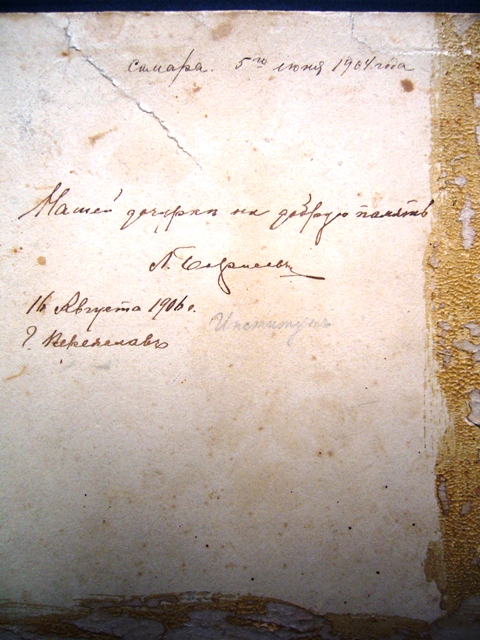 Самара. 5го июня 1904 года
Нашей дочурки на добрую память
16 Августа 1906 г.
Институтъ
г. Переяславъ